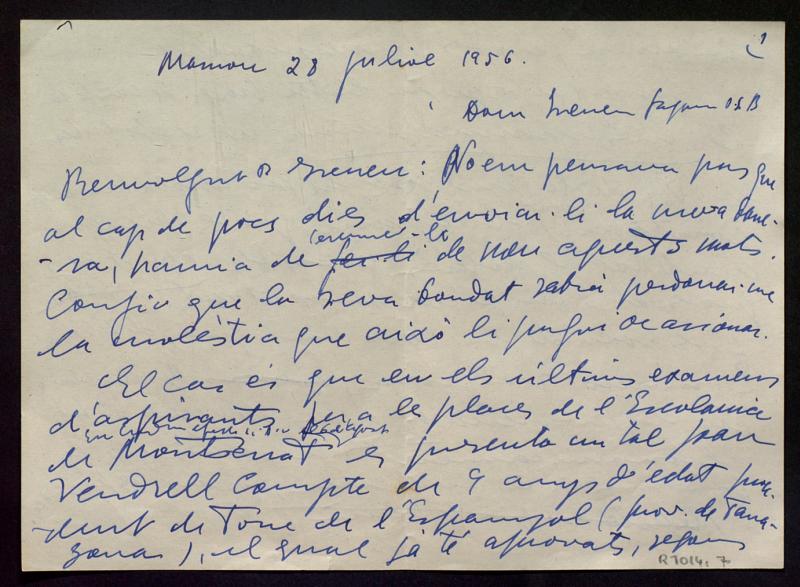 1
28 juliol 1956.
Dom Ireneu O.S.B
Benvolgut P. Ireneu: No em pensava pas que
al cap de pocs dies d'enviar-li la meva
havia de escriure-li de nou aquests mots.
Confio que la seva bondat sabrà perdonar-me
la molèstia que això li pugui ocasionar.
El cas és que en els últims examens
d'aspirants per a le places de l'Escolania
de Montserrat es presentà un tal Joan
Vendrell Compte de 9 anys d'edat
de Torre de l'Espanyol (prov. de Tarra-
gona), el qual ja té aprovats, segons
R 1014, 7